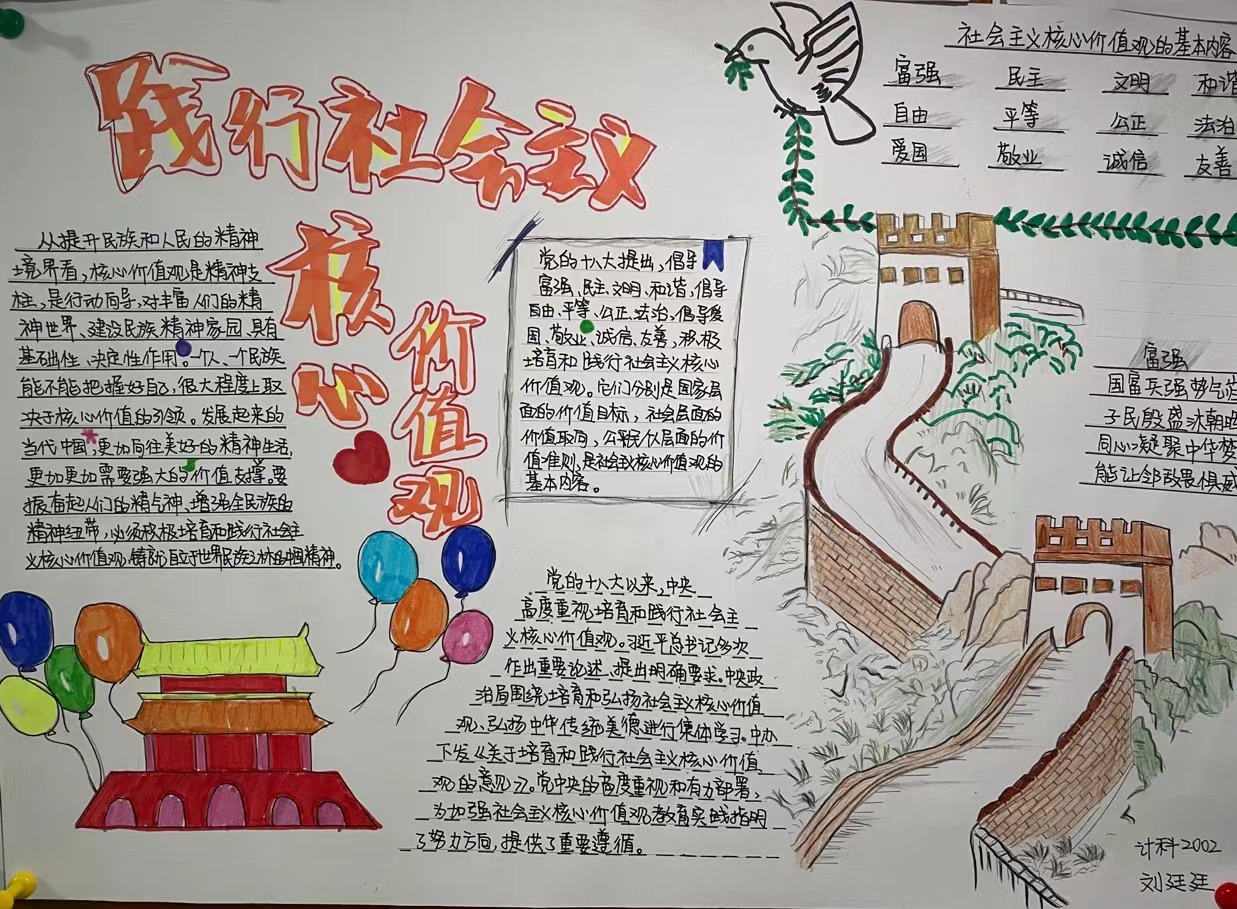 践行社会主义
核心
价值观
从提升民族和人民的精神
境界看,核心价值观是精神支
柱,是行动向导,对丰富人们的精
神世界、建设民族精神家园,具有
基础性、决定性作用。一个人、一个民族
能不能把握好自己,很大程度上取
决于核心价值的引领。发展起来的
当代中国,更加向往美好的精神生活,
更加更加需要强大的价值支撑。要
振奋起人们的精气神、增强全民族的
精神纽带,必须积极培育和践行社会主
义核心价值观,铸就自立于世界民族之林的中国精神。
党的十八大提出,倡导
富强、民主、文明、和谐,倡导
自由、平等、公正、法治,倡导爱
国、敬业、诚信、友善,积极
培育和践行社会主义核心
价值观。它们分别是国家层
面的价值目标,社会层面的
价值取向,公民个人层面的价
值准则,是社会主义核心价值观的
基本内容。
党的十八大以来,中央
高度重视培育和践行社会主
义核心价值观。习近平总书记多次
作出重要论述、提出明确要求。中央政
治局围绕培育和弘扬社会主义核心价值
观、弘扬中华传统美德进行集体学习。中办
下发《关于培育和践行社会主义核心价值
观的意见》。党中央的高度重视和有力部署,
为加强社会主义核心价值观教育实践指明
了努力方向,提供了重要遵循。
社会主义核心价值观的基本内容
富强 民主 文明 和谐
自由 平等 公正 法治
爱国 敬业 诚信 友善
富强
国富兵强势气
子民殷盛沐朝
同心凝聚中华梦
能让邻敌畏俱
计科2002
刘廷廷